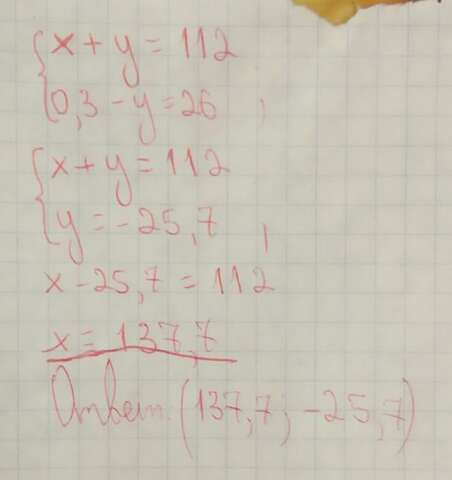 {x + y = 112
{0,3 - y = 26 ;
{x + y = 112
{y = -25,7 ;
x - 25,7 = 112
x = 137,7
Ответ: (137,7; -25,7)